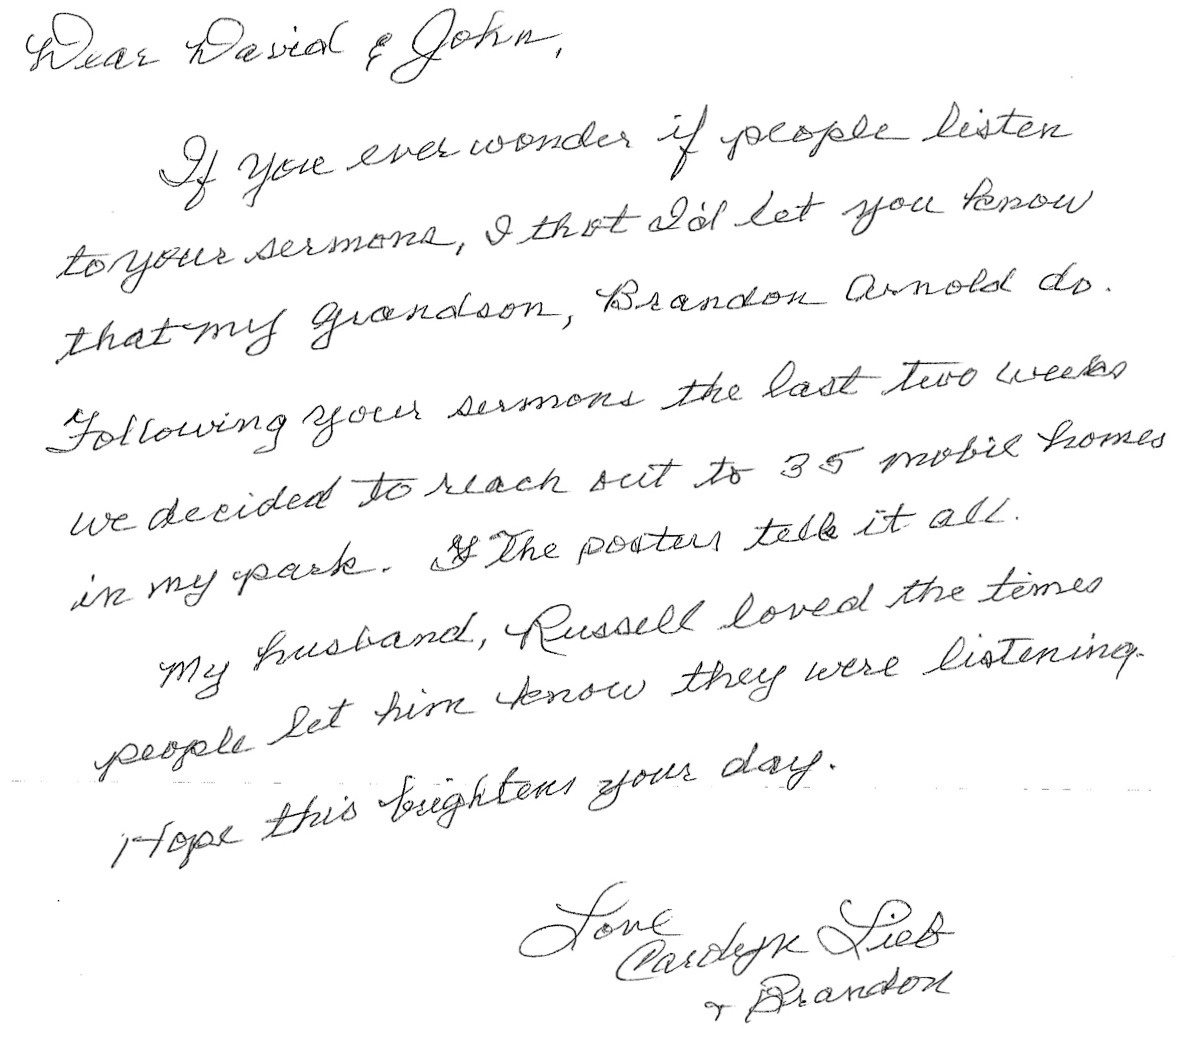 Dear David & John,
If you ever wonder if people listen
to your sermons, I thot I'd let you know
that my grandson, Brandon Arnold do.
Following your sermons the last two weeks
we decided to reach out to 35 mobil homes
in my park. The posters tell it all.
My husband, Russell loved the times
people let him know they were listening.
Hope this brightens your day.
Love
Carolyn Lieb
+ Brandon